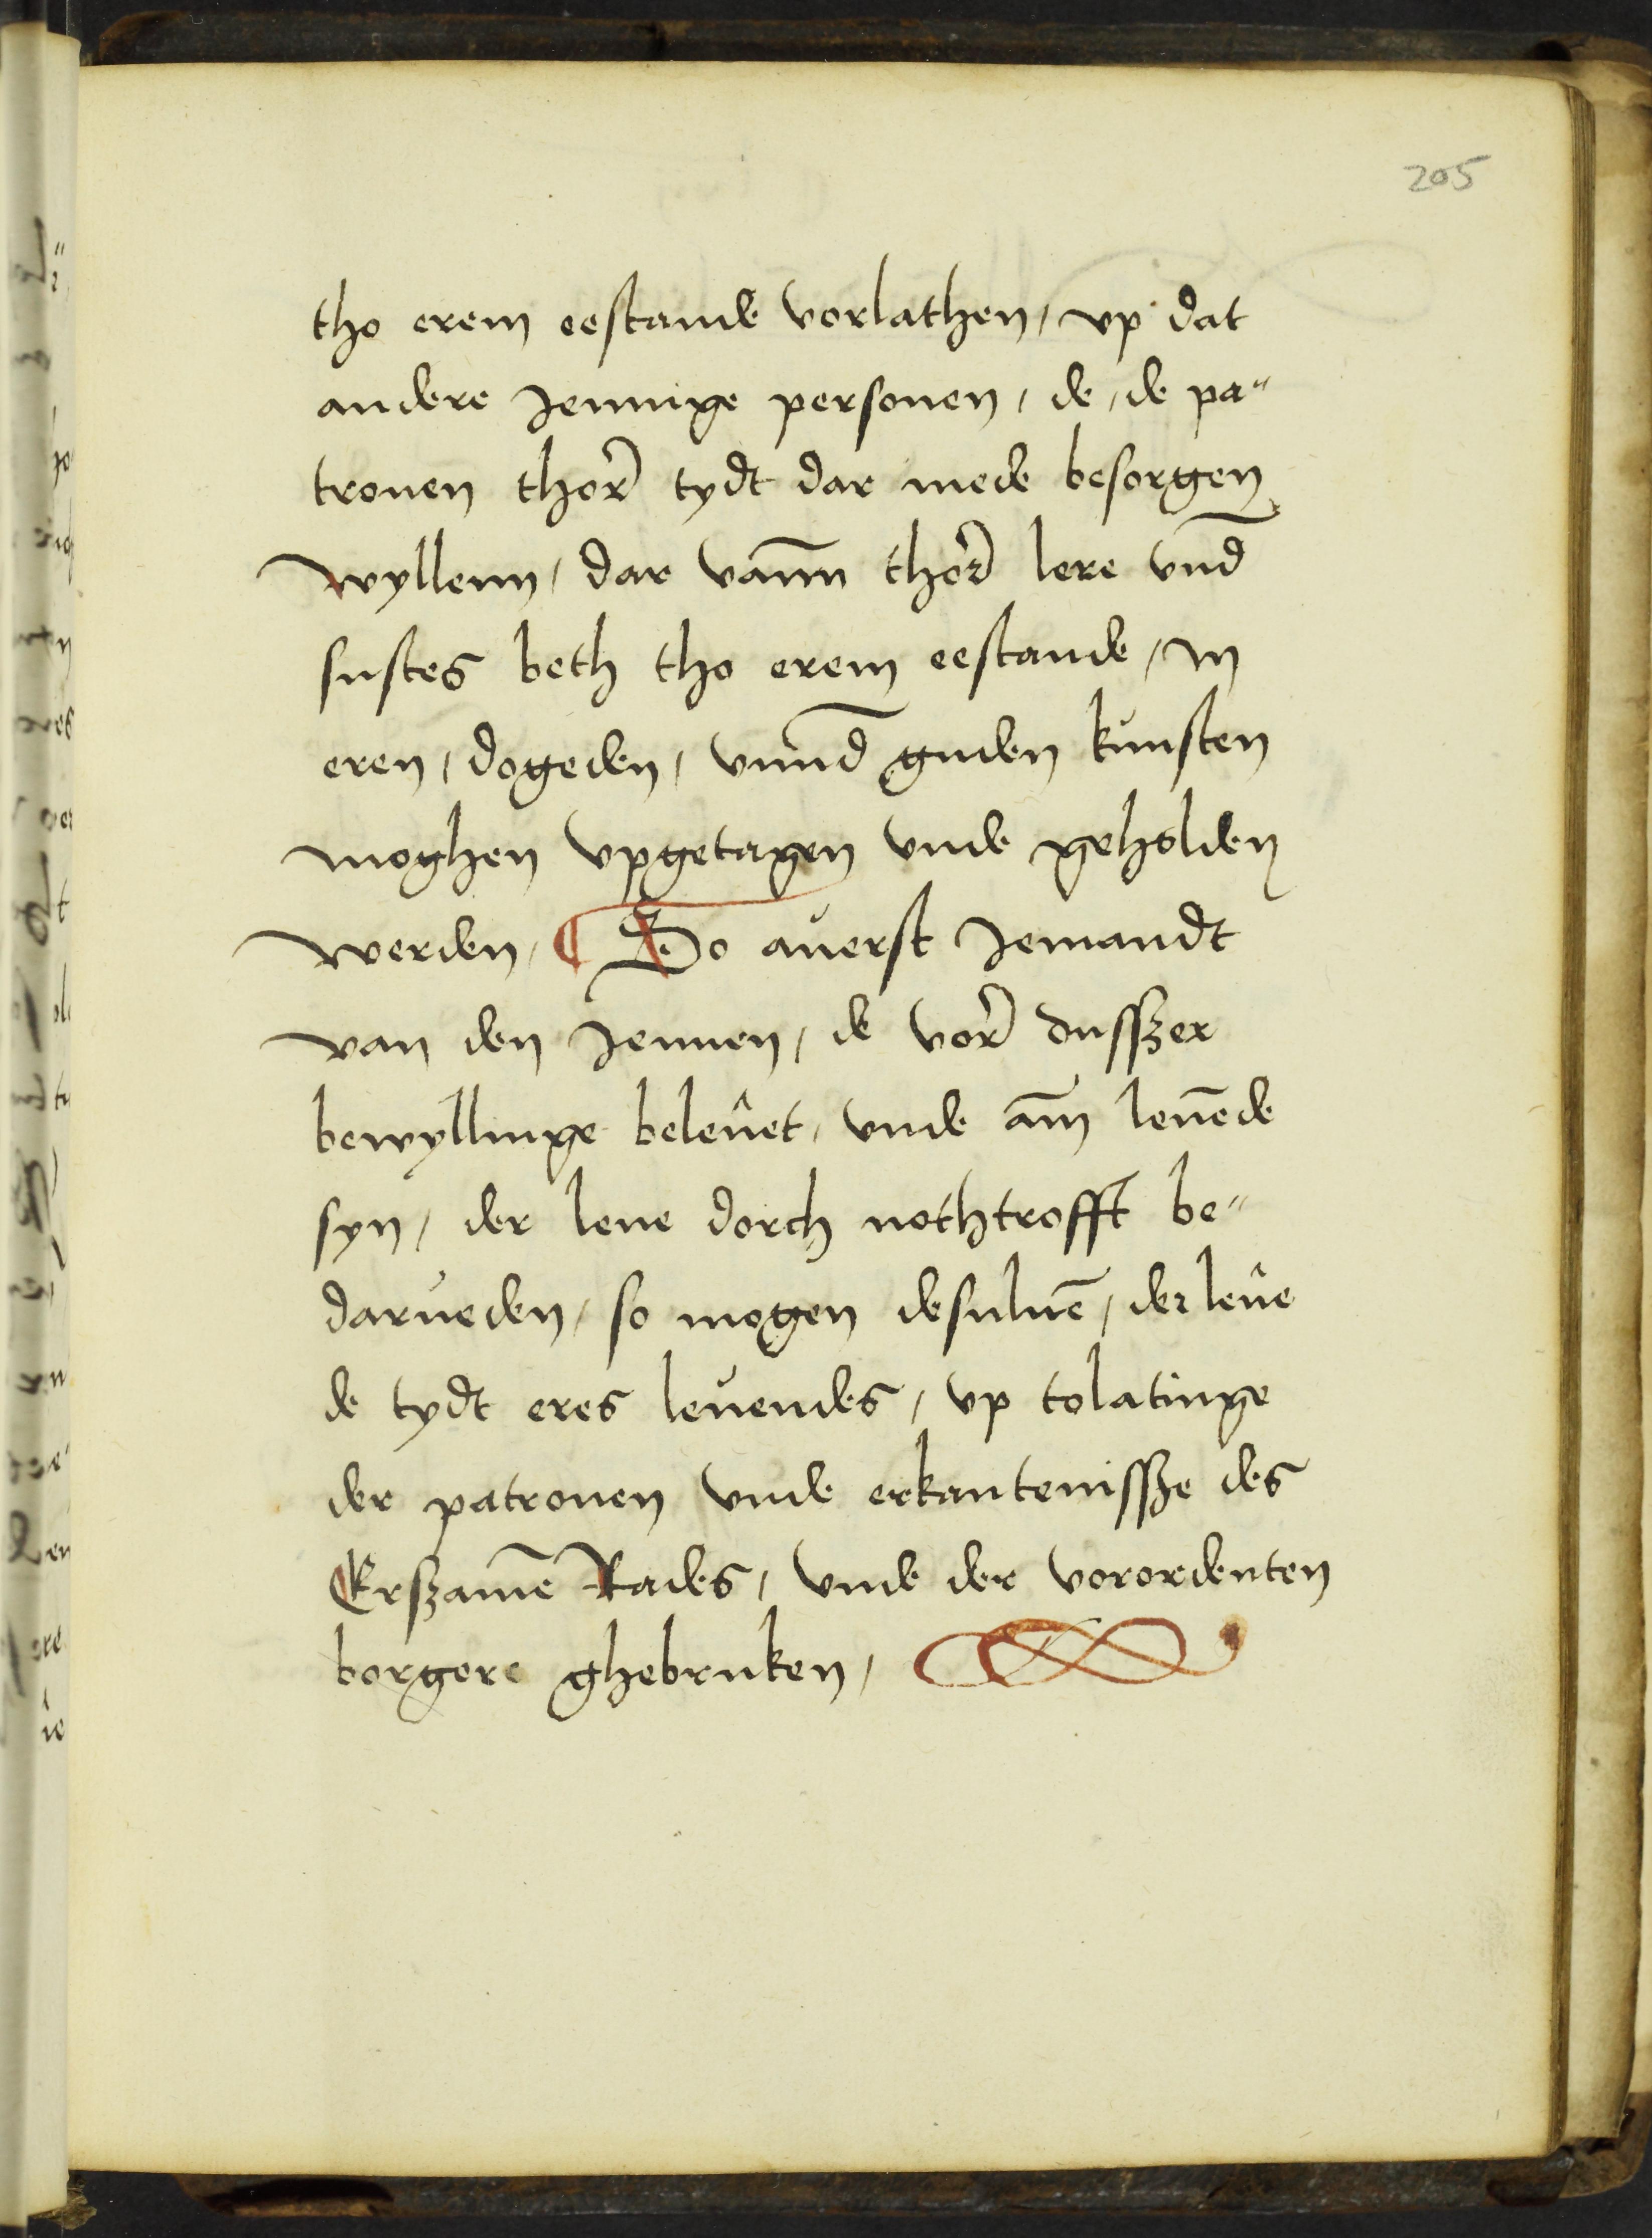 205
tho erem eestande vorlathen, vp dat
andere Jennige personen, de, de pa"
tronen thor̃ tydt dar mede besorgen
wyllenn, dar vañn thor̃ lere vnd̃
sustes beth tho erem eestande, in
eren, dogeden, vnnd̃ guden kunsten
moghen vpgetagen vnde geholden
werden, ¶ So auerst Jemandt
van den Jennen, de vor̃ dussßer
bewyllinge beleuet, vnde am̃ leuẽde
syn, der lene dorch nothtrofft be"
darueden, so mogen desuluẽ, der leue
de tydt eres leuendes, vp tolatinge
der patronen vnde erkantenissße des
Erßamẽ Rades, vnde der vorordenten
borgere ghebruken,